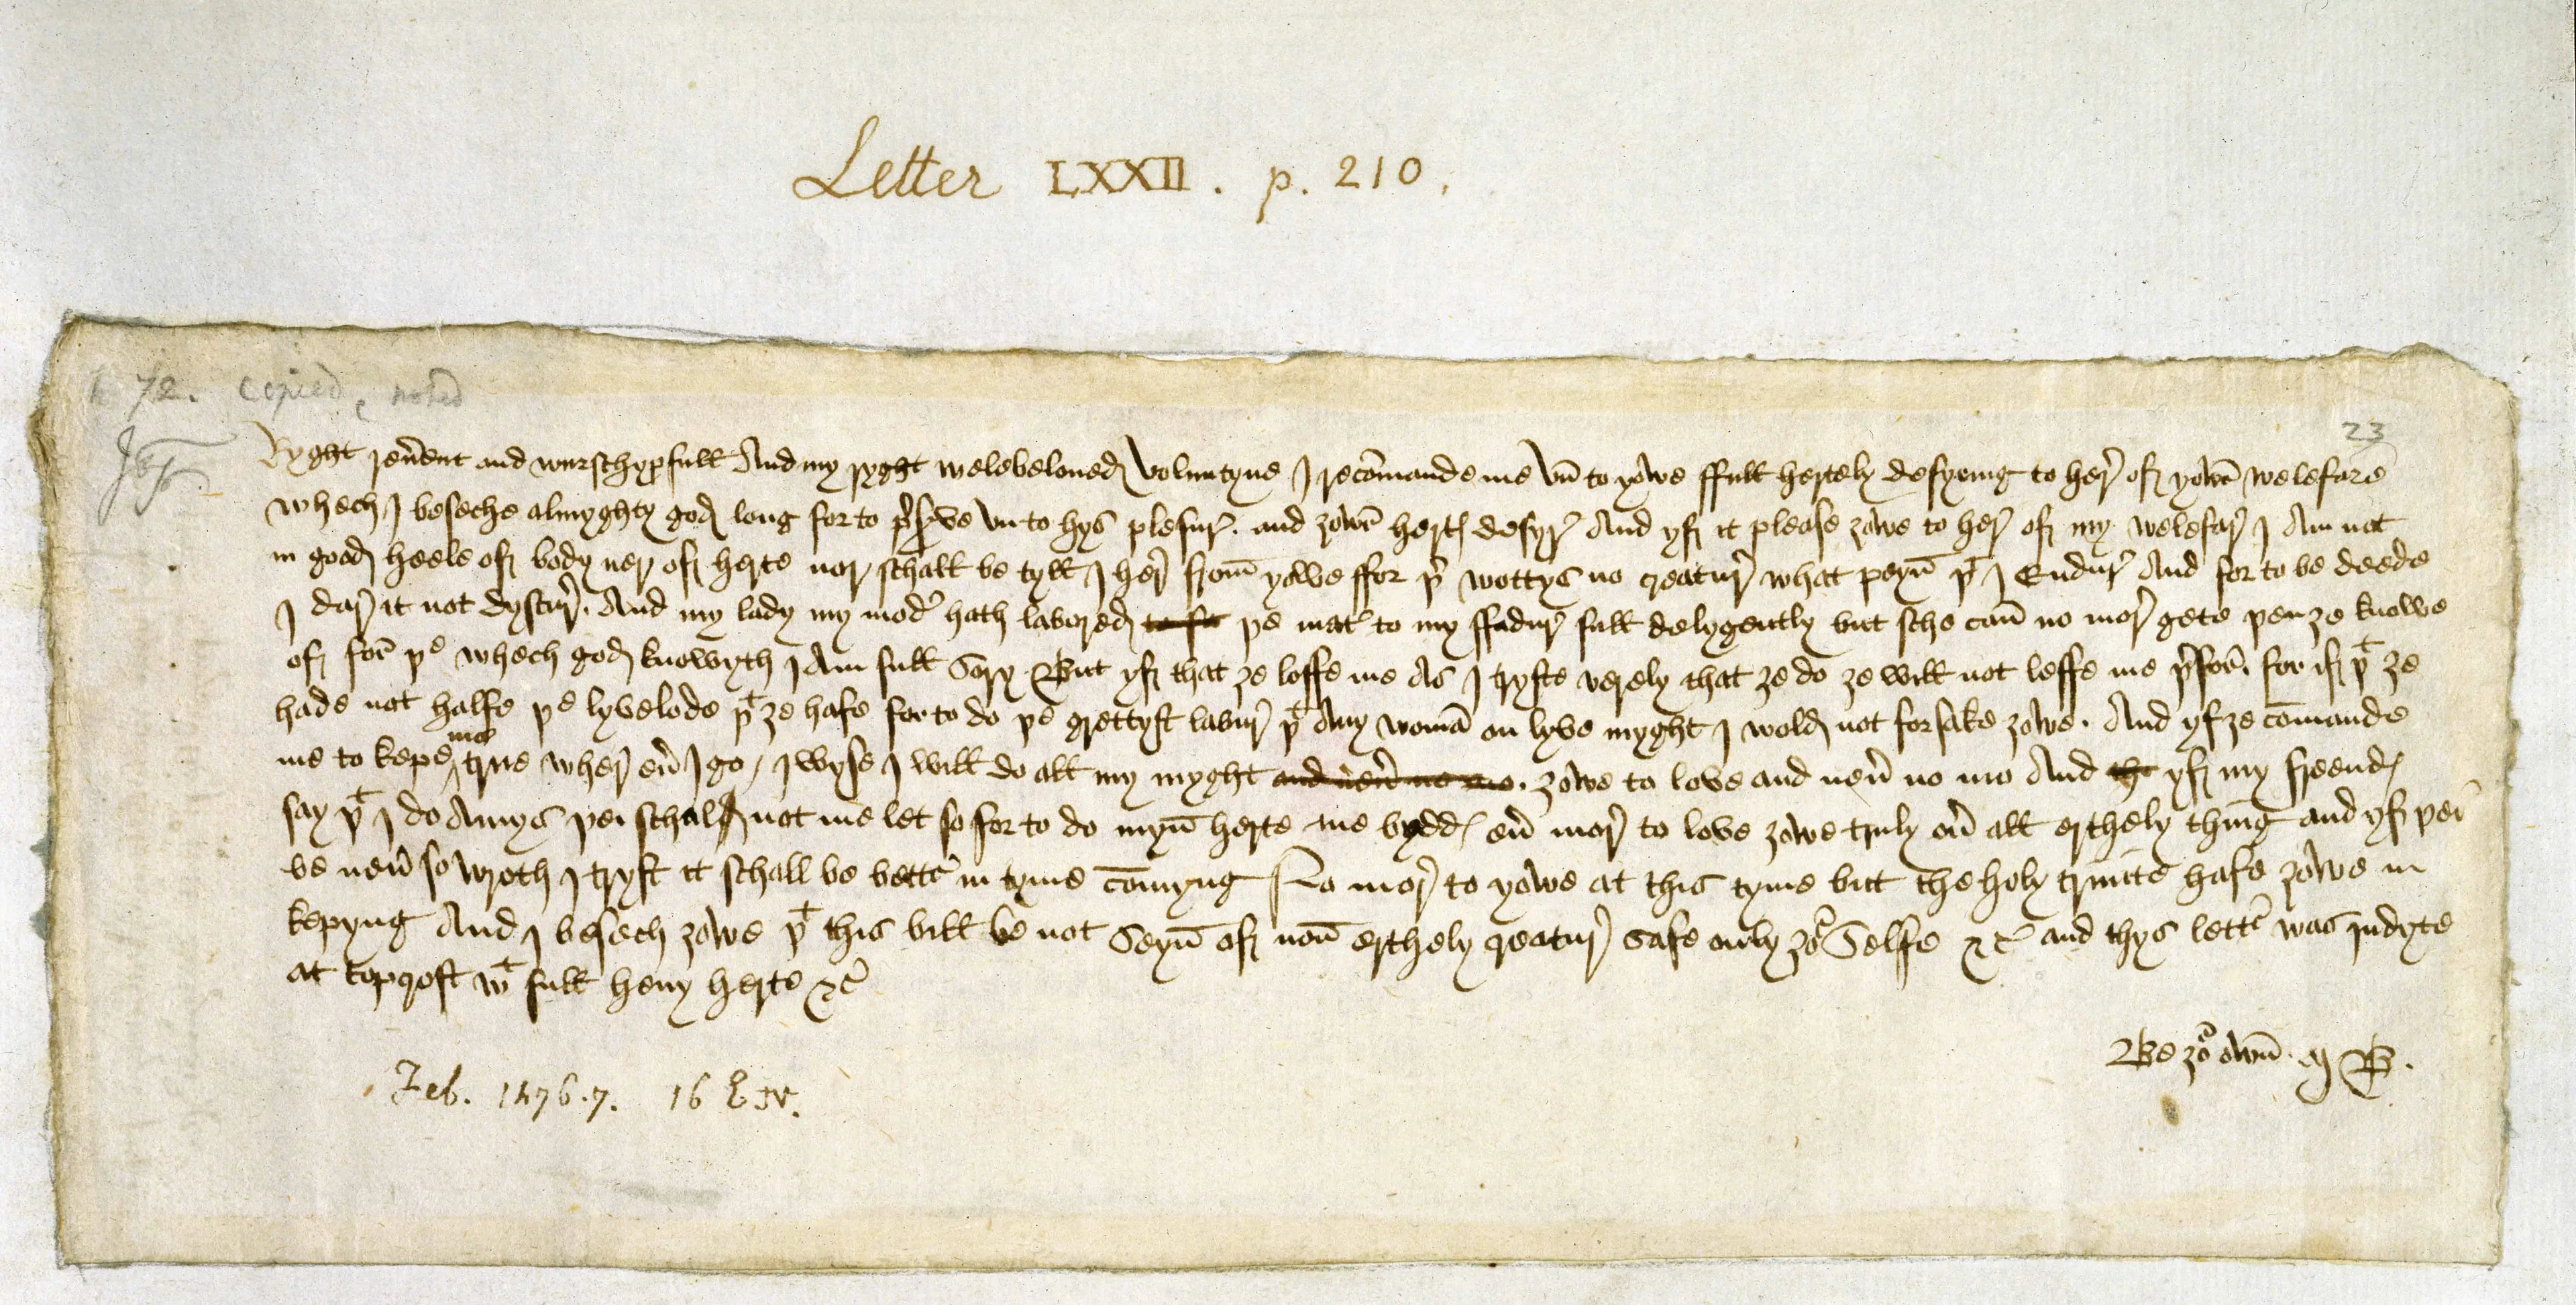 Letter LXXII. p. 210.
72. copied, noted
23
Ryght reuerent and wurschypfull And my ryght welebeloued Voluntyne I recomande me vn to yowe ffull hertely desyring to here of yowr welefare
whech I beseche almyghty god long for to preserve vn to hys plesure. and zowr hertes desyre And yf it please zowe to here of my welefare I Am not
in good heele of body ner of herte nor schall be tyll I here from yowe ffor þer wottys no creature what peyn þt I Endure And for to be deede
I dare it not dyscure. And my lady my moder hath labored to fa þe mater to my ffadure full delygently but sche can no more gete þen ze knowe
of for þe whech god knowyth I Am full Sory But yf that ze loffe me As I tryste verely that ze do ze will not leffe me þerfor. for if þt ze
hade not halfe þe lyvelode þt ze hafe for to do þe grettyst labure þt Any woman on lyve myght I wold not forsake zowe. And yf ze comande
me to kepe me true where euer I go / I wyse I will do all my myght and neuer no mo. zowe to love and neuer no mo And the yf my freendes
say þt I do Amys þei schal not me let so for to do myn herte me byddes euer more to love zowe truly ouer all erthely thing and yf þei
be neuer so wroth I tryst it schall be better in tyme comyng No more to yowe at this tyme but the holy trinite hafe zowe in
kepyng And I besech zowe þt this bill be not Seyn of non erthely creature safe only zour Selfe &c and thys letter was indyte
at topcroft wt full heuy herte &c
Be zour own. M B.
Feb. 1476.7. 16 E. IV.